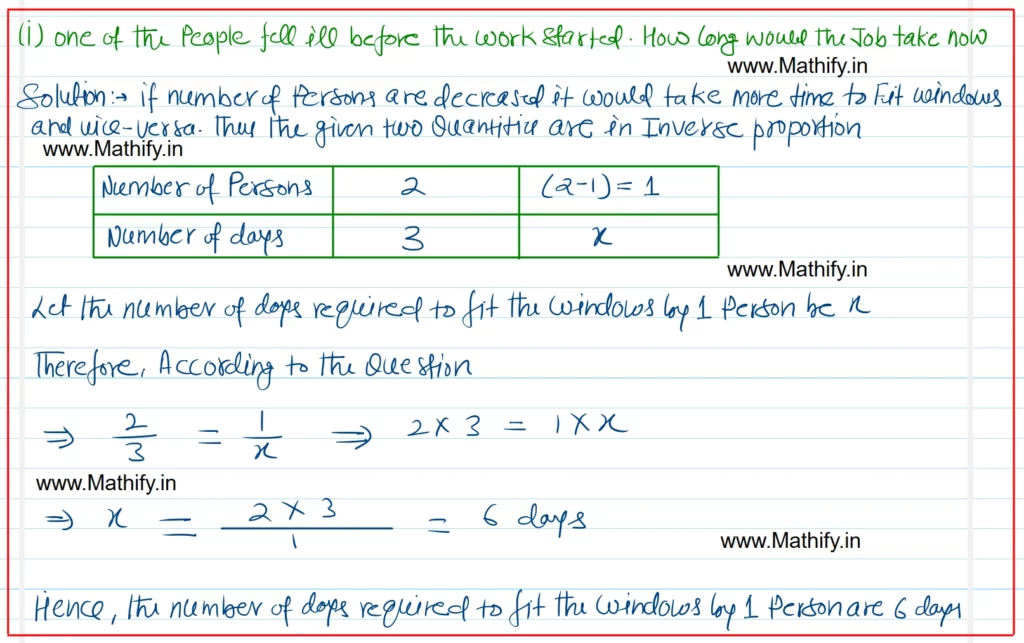 (i) one of the People fell ill before the work started. How long would the Job take now
www.Mathify.in
Solution:→ if number of Persons are decreased it would take more time to Fit windows
and vice-versa. Thus the given two Quantities are in Inverse proportion
www.Mathify.in
Number of Persons 2 (2-1) = 1
Number of days 3 x
www.Mathify.in
Let the number of days required to fit the windows by 1 Person be x
Therefore, According to the Question
⇒ 2/3 = 1/x ⇒ 2 × 3 = 1 × x
www.Mathify.in
⇒ x = 2 × 3 / 1 = 6 days
www.Mathify.in
Hence, the number of days required to fit the windows by 1 Person are 6 days